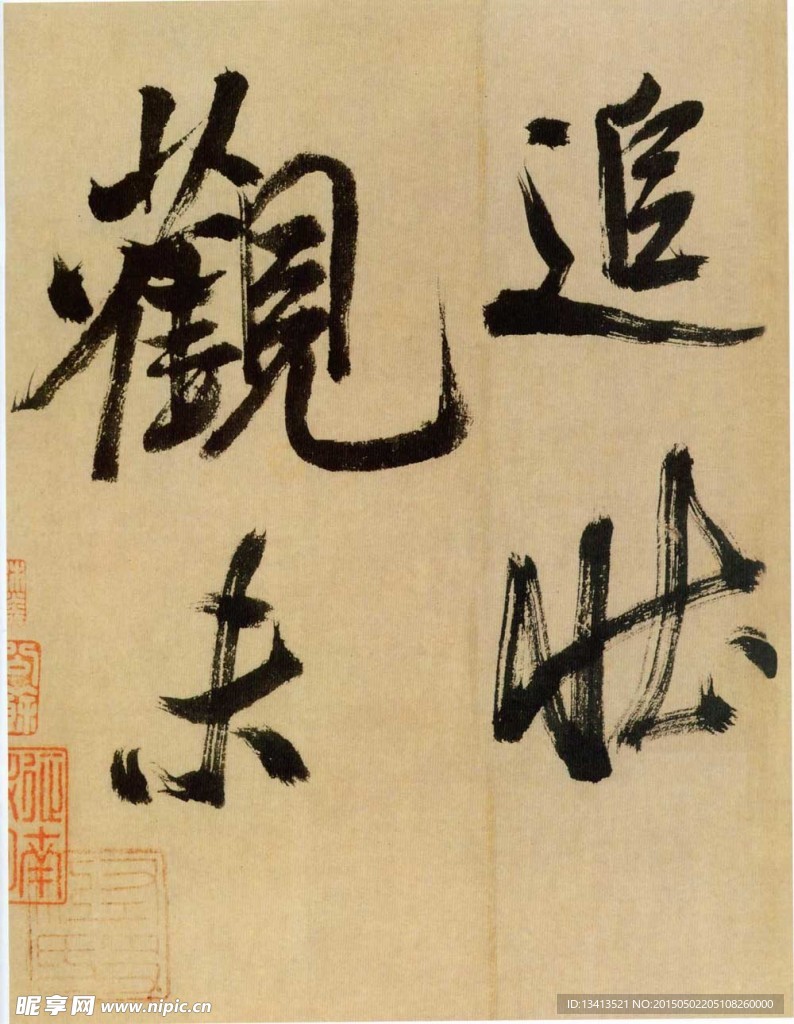 追壯
觀未
昵享网 www.nipic.cn
ID:13413521 NO:20150502205108260000